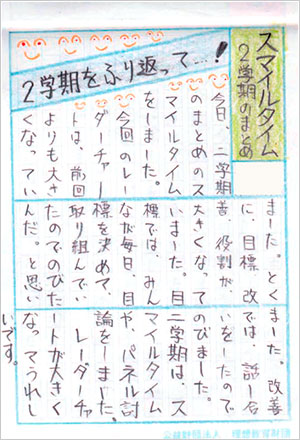 スマイルタイム
2学期のまとめ
2学期をふり返って…!
今日、二学期
のまとめのス
マイルタイム
をしました。
今回のレー
ダーチャー
トは、前回
よりも大き
くなってい
ました。とく
に、目標、改
善、役割が、
大きくなって
いました。目
標では、みん
なが毎日、目
標を決めて、
取り組んでい
たのでのびた
んだ。と思い
ました。改善
では、話し合
いをしたので
のびました。
二学期は、ス
マイルタイム
や、パネル討
論をしました。
レーダーチャ
ートが大きく
なってうれし
いです。
公益財団法人 理想教育財団